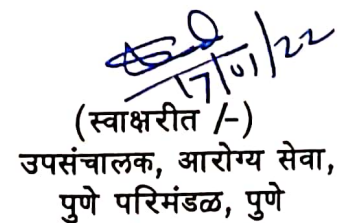 17/01/22
(स्वाक्षरीत /-)
उपसंचालक, आरोग्य सेवा,
पुणे परिमंडळ, पुणे